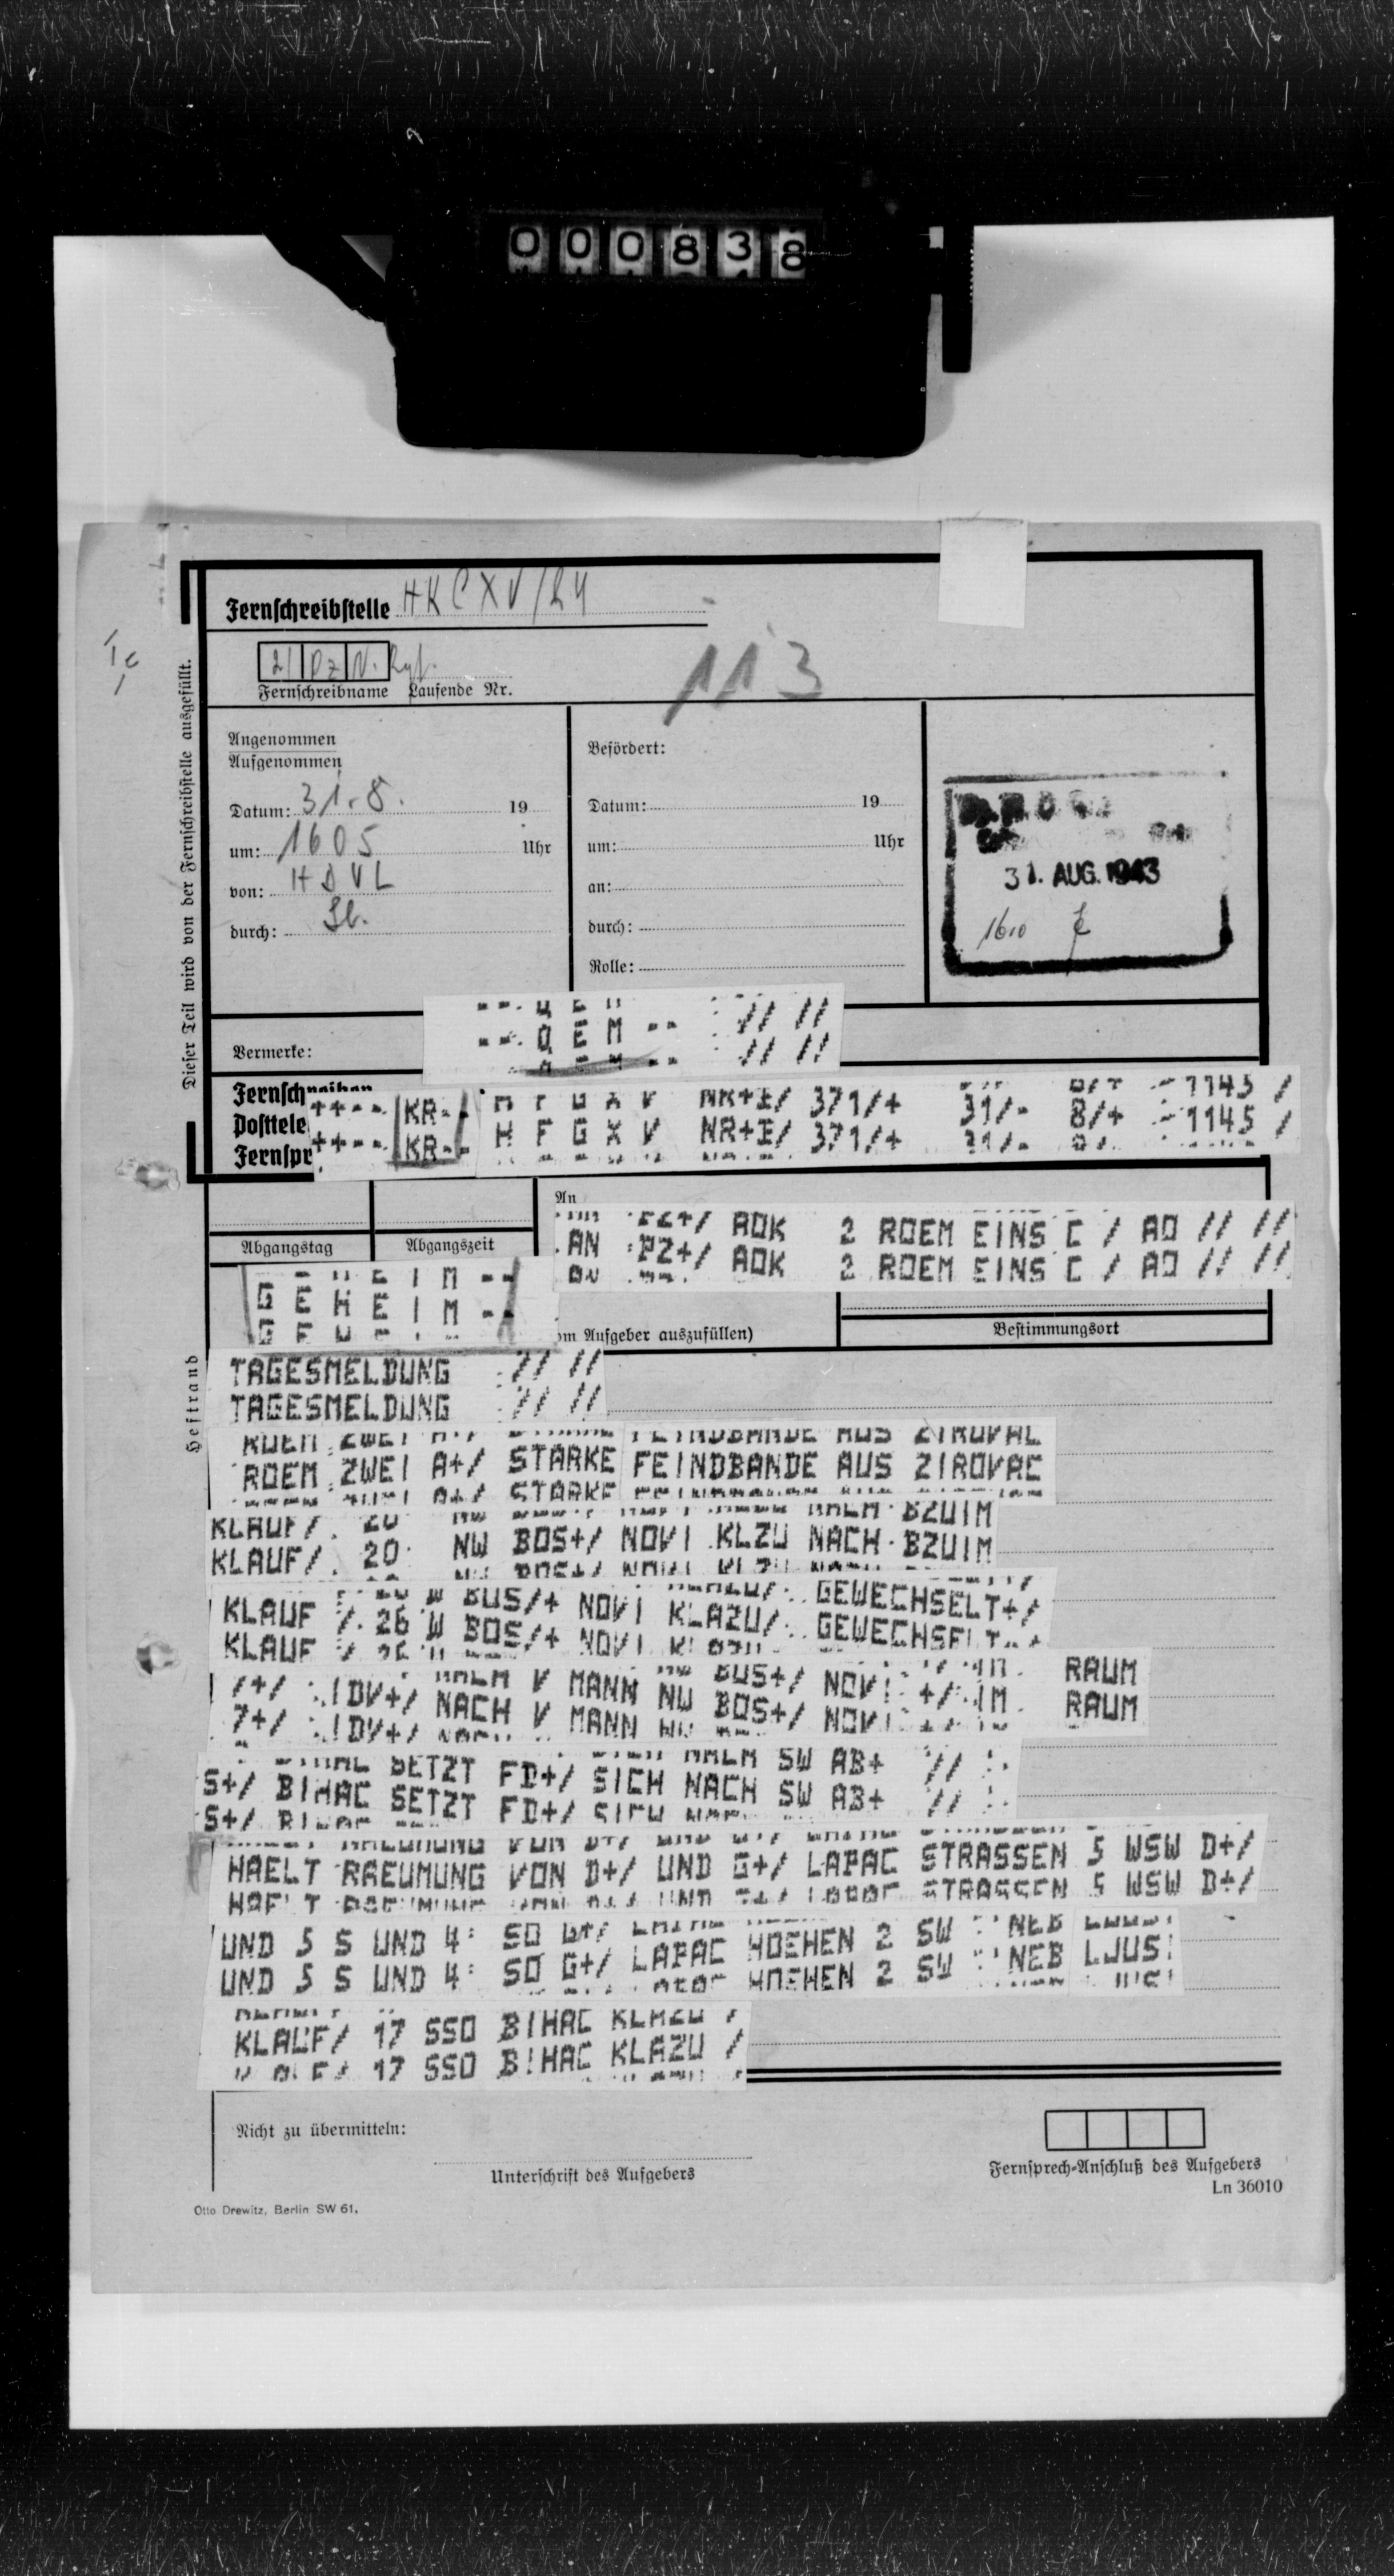 000838
Fernschreibstelle HKCXV/24
113
Ic
21 Pz N. Rgt.
Fernschreibname Laufende Nr.
Dieser Teil wird von der Fernschreibstelle ausgefüllt.
Angenommen
Aufgenommen
Datum: 31.8. 19
um: 1605 Uhr
von: HDVL
durch:
Befördert:
Datum: 19
um: Uhr
an:
durch:
Rolle:
31. AUG. 1943
1610
Vermerke:
--. Q E M -- : // //
Fernschreiben
Posttele
Fernspr
++-- KR-- H F G X V NR+I/ 371/+ 31/- 8/+ -1145 /
An
Abgangstag
Abgangszeit
.AN :PZ+/ AOK 2 ROEM EINS C / AO // //
G E H E I M --
om Aufgeber auszufüllen)
Bestimmungsort
Heftrand
TAGESMELDUNG :// //
TAGESMELDUNG :// //
ROEM ZWEI A+/ STARKE FEINDBANDE AUS ZIROVAC
KLAUF/. 20 NW BOS+/ NOVI KLZU NACH BZUIM
KLAUF /. 26 W BOS/+ NOVI KLAZU/. GEWECHSELT+/
7+/ :.!DV+/ NACH V MANN NW BOS+/ NOVI +/ IM RAUM
S+/ BIHAC SETZT FD+/ SICH NACH SW AB+ // :
HAELT RAEUMUNG VON D+/ UND G+/ LAPAC STRASSEN 5 WSW D+/
UND 5 S UND 4: SO G+/ LAPAC HOEHEN 2 SW NEB LJUS:
KLAUF/ 17 SSO BIHAC KLAZU /
Nicht zu übermitteln:
Unterschrift des Aufgebers
Fernsprech-Anschluß des Aufgebers
Ln 36010
Otto Drewitz, Berlin SW 61.